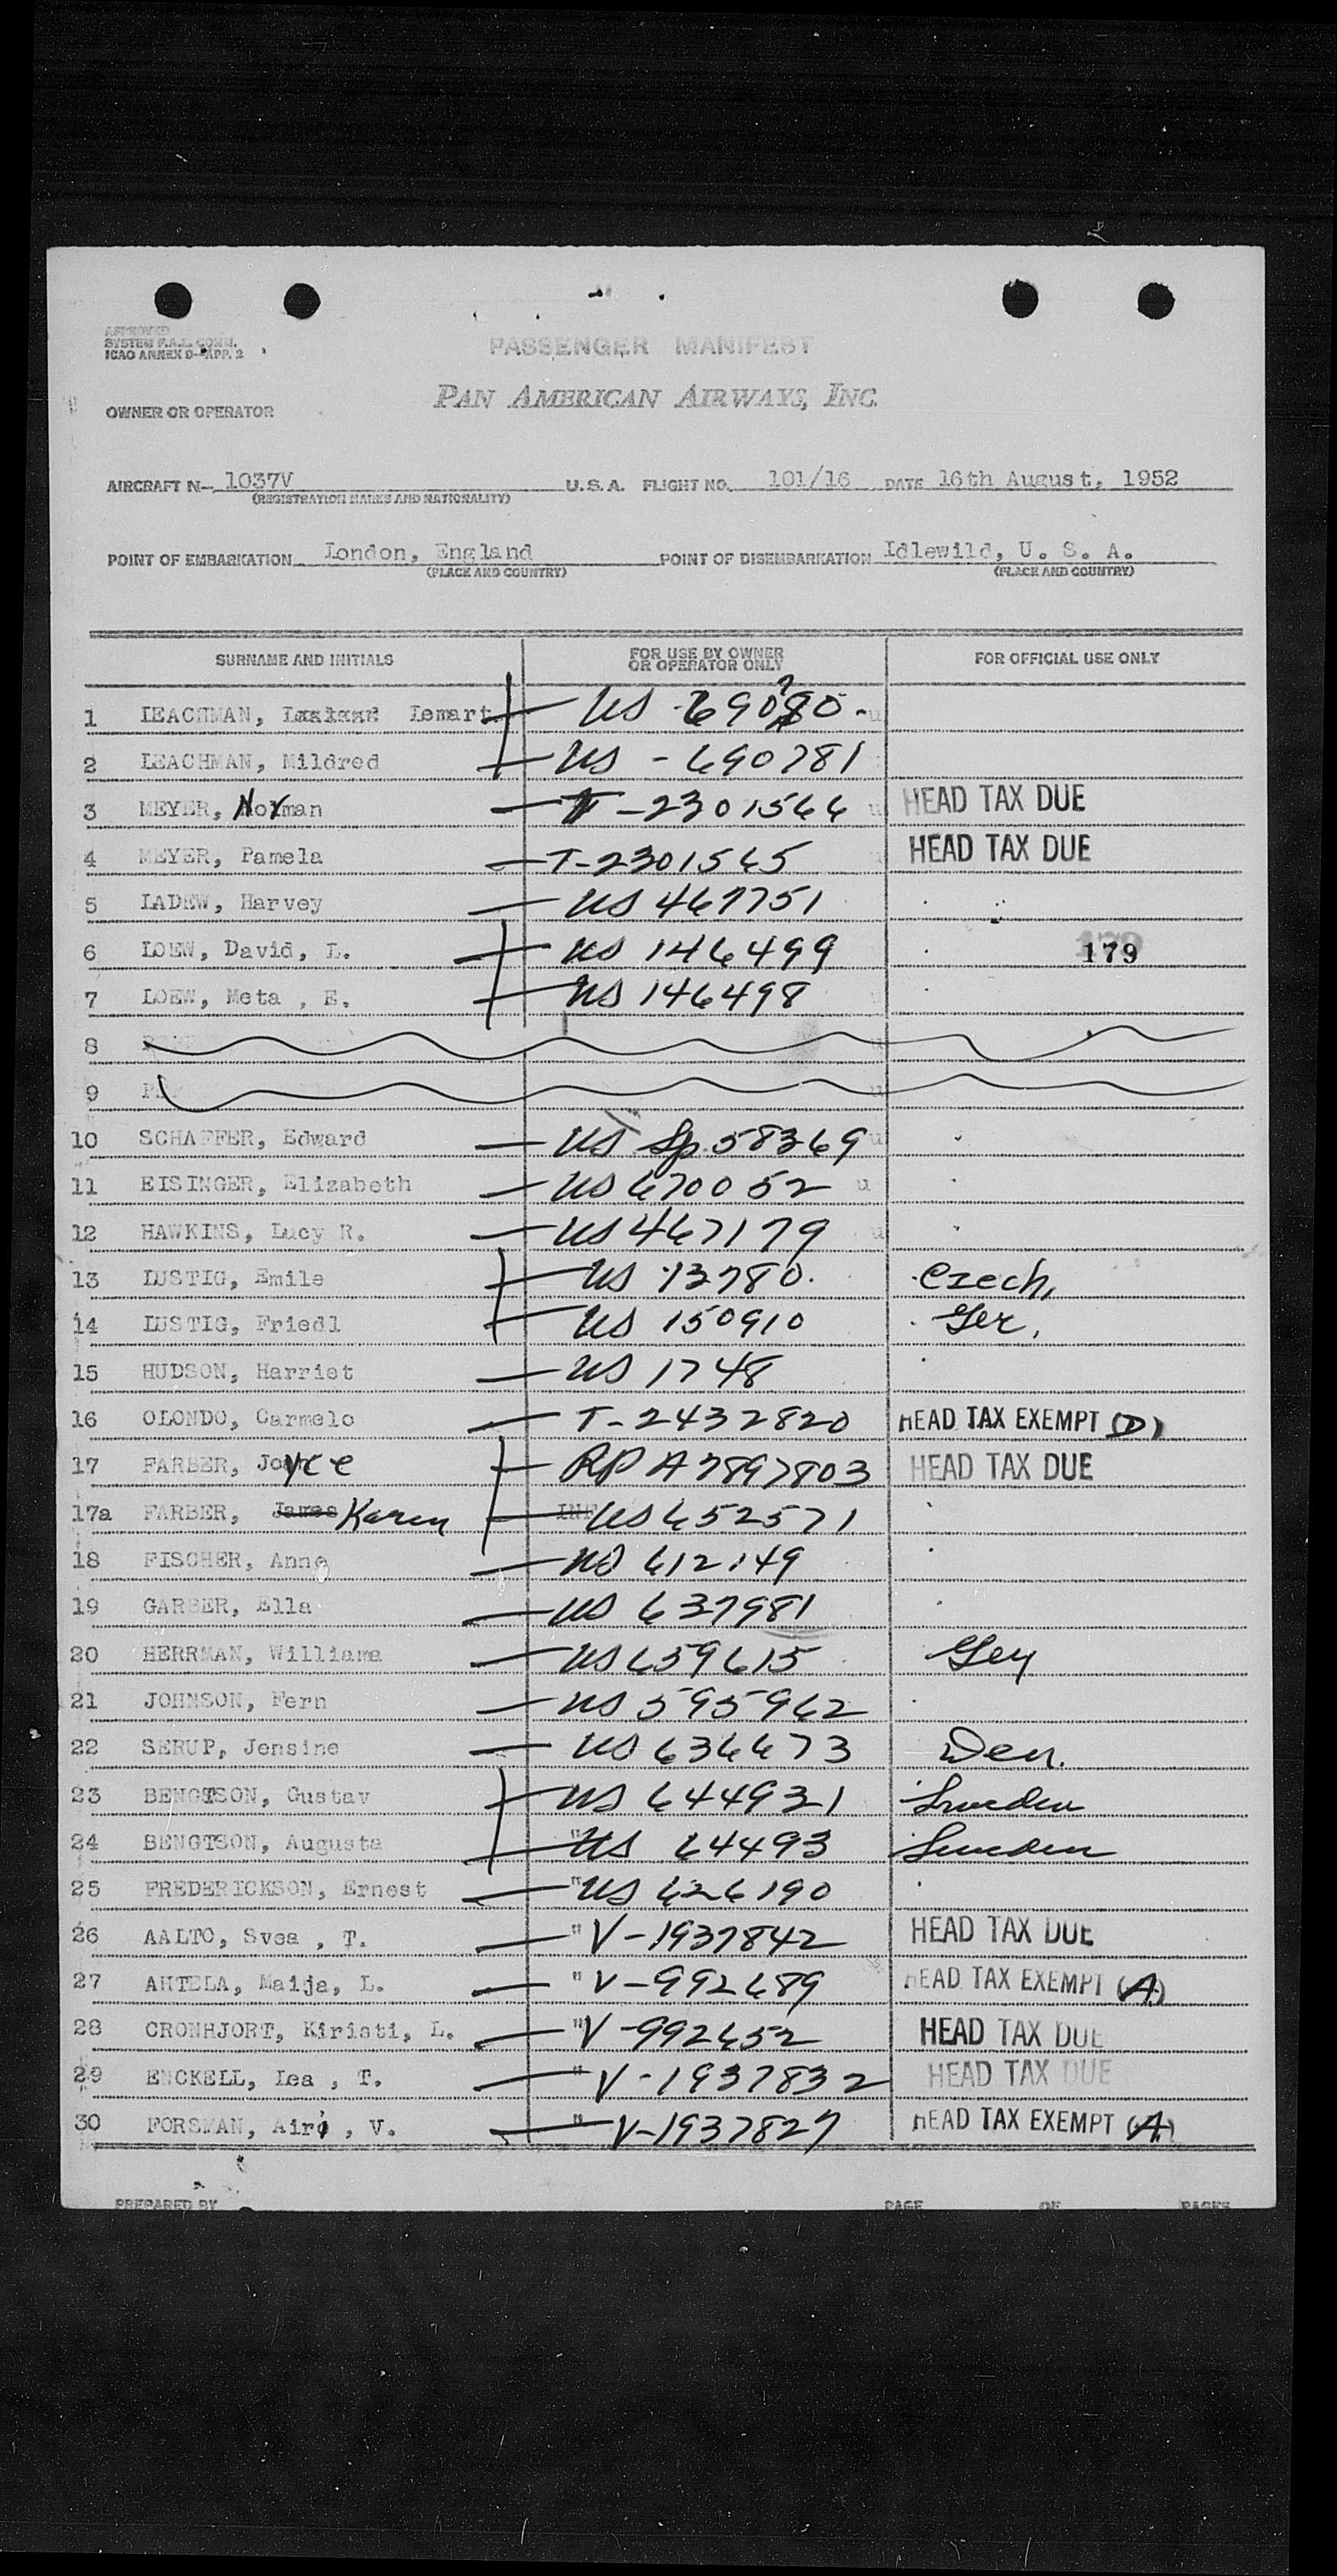 APPROVED
SYSTEM F.A.L. COMM.
ICAO ANNEX 9-APP. 2
PASSENGER MANIFEST
OWNER OR OPERATOR PAN AMERICAN AIRWAYS, INC.
AIRCRAFT N- 1037V U.S.A. FLIGHT NO. 101/16 DATE 16th August, 1952
(REGISTRATION MARKS AND NATIONALITY)
POINT OF EMBARKATION London, England POINT OF DISEMBARKATION Idlewild, U. S. A.
(PLACE AND COUNTRY) (PLACE AND COUNTRY)
SURNAME AND INITIALS FOR USE BY OWNER OR OPERATOR ONLY FOR OFFICIAL USE ONLY
1 LEACHMAN, Lemart US 690780
2 LEACHMAN, Mildred US - 690781
3 MEYER, Norman T-2301566 HEAD TAX DUE
4 MEYER, Pamela T-2301565 HEAD TAX DUE
5 LADEW, Harvey US 467751
6 LOEW, David, L. US 146499 179
7 LOEW, Meta , E. US 146498
8
9
10 SCHAFFER, Edward US Sp. 58369
11 EISINGER, Elizabeth US 670052
12 HAWKINS, Lucy R. US 467179
13 LUSTIG, Emile US 13780. Czech,
14 LUSTIG, Friedl US 150910 Ger,
15 HUDSON, Harriet US 1748
16 OLONDO, Carmelo T-2432820 HEAD TAX EXEMPT (D)
17 FARBER, Joyce RP A7897803 HEAD TAX DUE
17a FARBER, James Karen INF US 652571
18 FISCHER, Anna US 612149
19 GARBER, Ella US 637981
20 HERRMAN, Williama US 659615 Ger
21 JOHNSON, Fern US 595962
22 SERUP, Jensine US 636673 Den.
23 BENGTSON, Gustav US 644931 Sweden
24 BENGTSON, Augusta "US 64493 Sweden
25 FREDERICKSON, Ernest "US 626190
26 AALTO, Svea , T. "V-1937842 HEAD TAX DUE
27 AHTELA, Maija, L. "V-992689 HEAD TAX EXEMPT (A)
28 CRONHJORT, Kiristi, L. "V-992652 HEAD TAX DUE
29 ENCKELL, Lea , T. "V-1937832 HEAD TAX DUE
30 FORSMAN, Airi , V. "V-1937827 HEAD TAX EXEMPT (A)
PREPARED BY PAGE OF PAGES